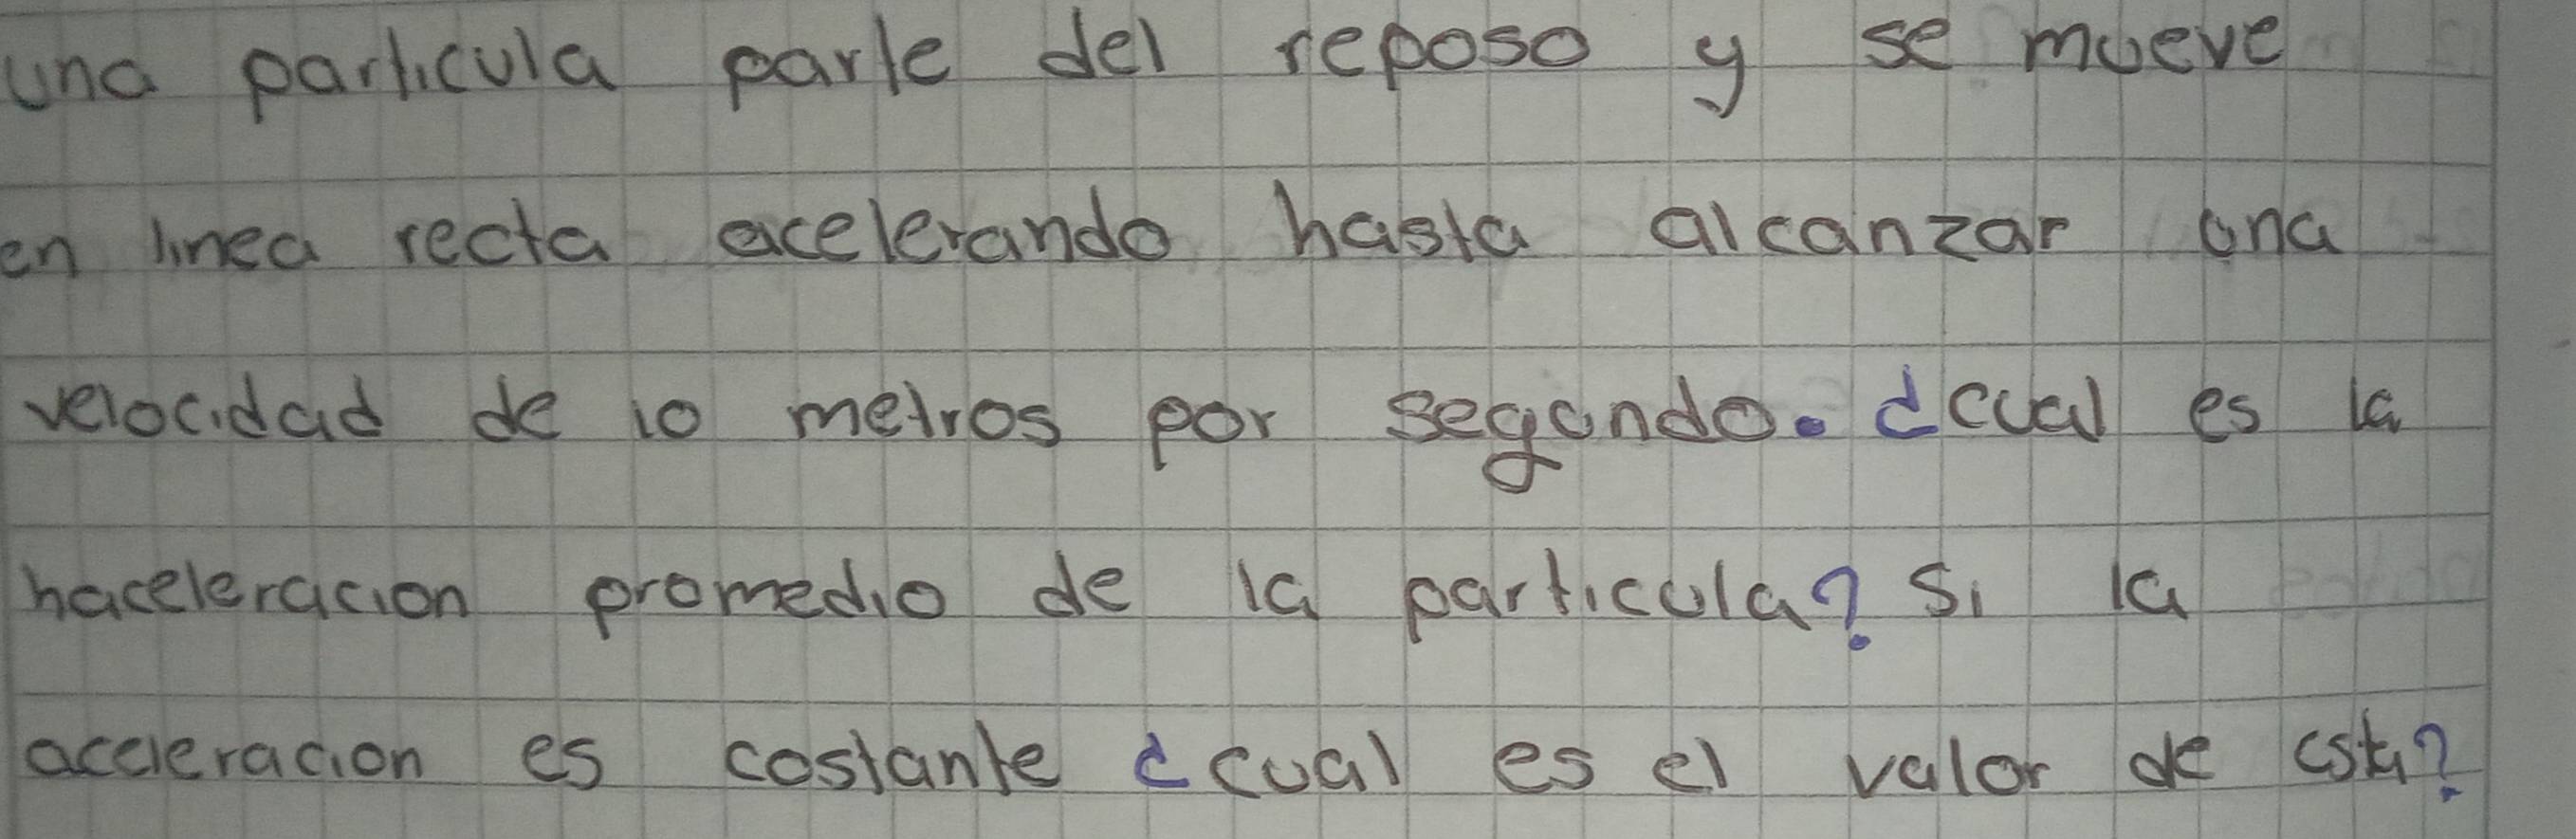 una particula parte del reposo y se mueve
en linea recta acelerando hasta alcanzar una
velocidad de 10 metros por segundo. ¿cual es la
haceleracion promedio de la particula? si la
aceleracion es costante ¿cual es el valor de esta?